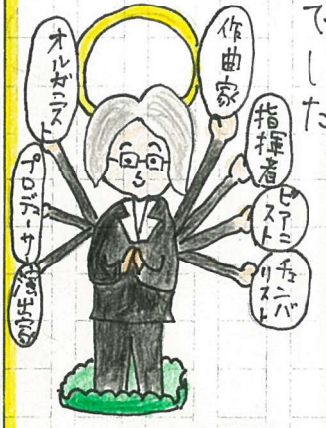 でした
作曲家
指揮者
ピアニ
スト
チェンバ
リスト
オルガニスト
プロデューサー
演出家